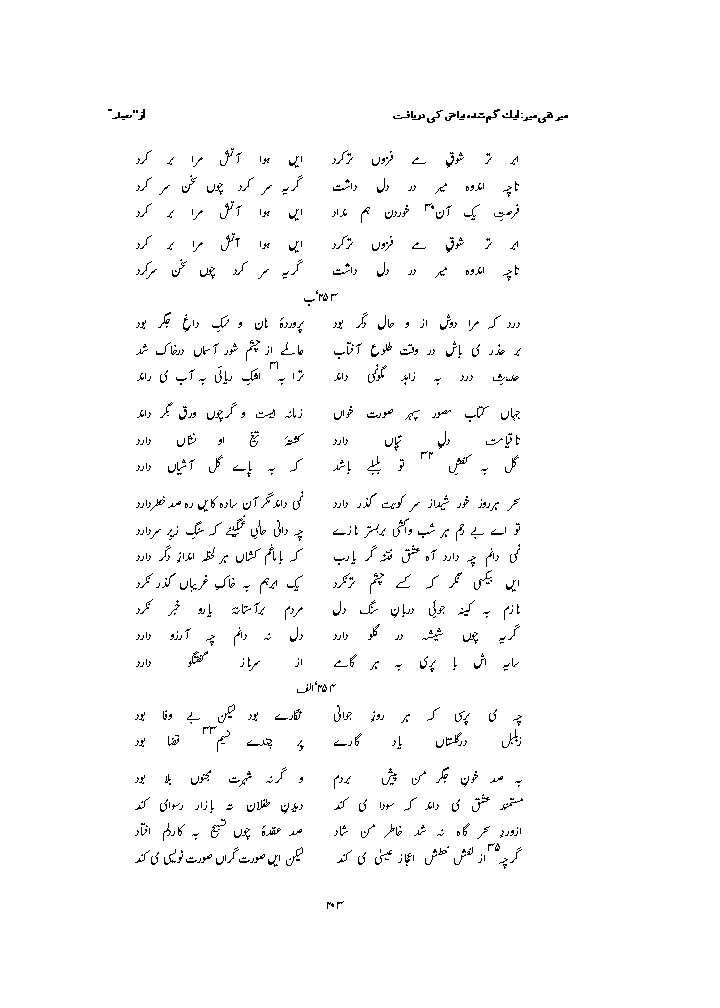 میر تقی میر: ایک گم شدہ بیاض کی دریافت از "معیار"
ابر تر شوق مے فزوں ترکرد ایں ہوا آتش مرا بر کرد
تاچہ اندوہ میر در دل داشت گریہ سر کرد چوں سخن سر کرد
فرصت یک آن۳۰ خوردن ہم نداد ایں ہوا آتش مرا بر کرد
ابر تر شوق مے فزوں ترکرد ایں ہوا آتش مرا بر کرد
تاچہ اندوہ میر در دل داشت گریہ سر کرد چوں سخن سرکرد
۲۵۳‘ب
درد کہ مرا دوش از و حال دگر بود پروردۂ نان و نمکِ داغِ جگر بود
بر حذر می باش در وقت طلوع آفتاب عالمے از چشم شور آسماں درخاک شد
حدیث درد بہ زاہد مگوئی داند ترا بہ۳۱ اشک ریائی بہ آب می راند
جہاں کتاب مصور سپہر صورت خواں زمانہ ایست و گرچوں ورق دگر داند
تاقیامت دلِ تپاں دارد کشتۂ تیغ او نشاں دارد
گل بہ کفش۳۲ تو بلبلے باشد کہ بہ پاے گل آشیاں دارد
سحر ہرروز خور شیداز سر کویت گذر دارد نمی داندمگر آن سادہ کایں رہ صد خطردارد
تو اے بے غم ہر شب واکشی بربستر نازے چہ دانی حال غمگینے کہ سنگ زیر سردارد
نمی دانم چہ دارد آہ عشق فتنہ گر یارب کہ باناغم کشاں ہر لحظہ انداز دگر دارد
ایں بیکسی نگر کہ کسے چشم ترنکرد یک ابرہم بہ خاک غریباں گذر نکرد
نازم بہ کینہ جوئی دربان سنگ دل مردم برآستانۂ یارو خبر نکرد
گریہ چوں شیشہ در گلو دارد دل نہ دانم چہ آرزو دارد
سایہ اش با پری بہ ہر گامے از سرناز گفتگو دارد
۲۵۴‘الف
چہ می پرسی کہ ہر روز جوانی نگارے بود لیکن بے وفا بود
زبلبل درگلستاں یاد گارے پر چندے نسیم۳۳ قضا بود
بہ صد خونِ جگر من پیش بردم و گرنہ شہرت مجنوں بلا بود
مستمند عشق می داند کہ سودا می کند دیدن طفلان تہ بازار رسوای کند
ازورد سحر گاہ نہ شد خاطر من شاد صد عقدہ چوں تسبیح بہ کاردلم افتاد
گرچہ۳۵ از لفش نطقش اعجاز عیسیٰ می کند لیکن ایں صورت گراں صورت نویسی می کند
۲۰۳